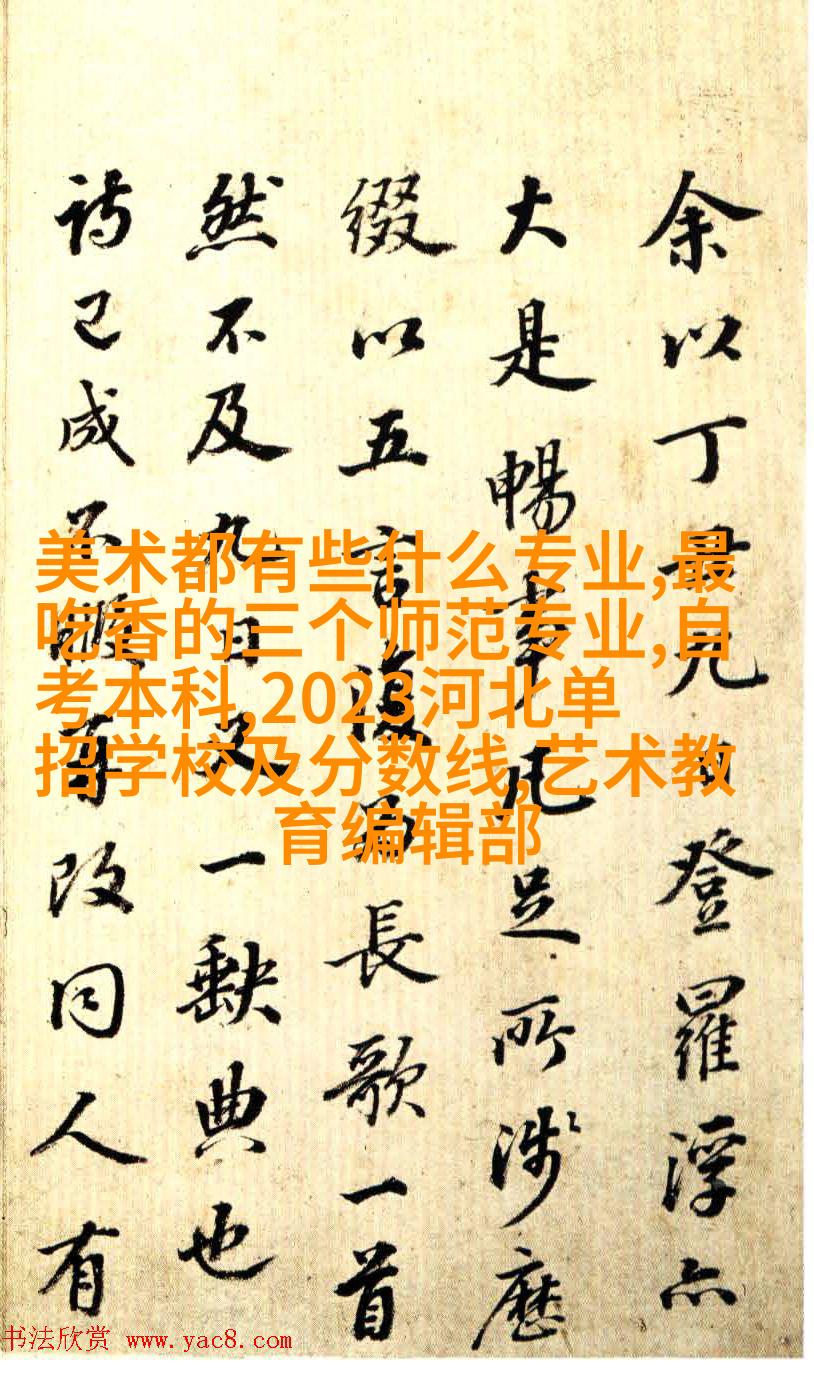 余以丁丑元日登羅浮亦
大是暢事凡足所涉歷
綴以五言復為長歌一首
然不及九日又一缺典也
詩已成不改同人有
美术都有些什么专业,最
吃香的三个师范专业,自
考本科,2023河北单
招学校及分数线,艺术教
育编辑部
书法欣赏 www.yac8.com